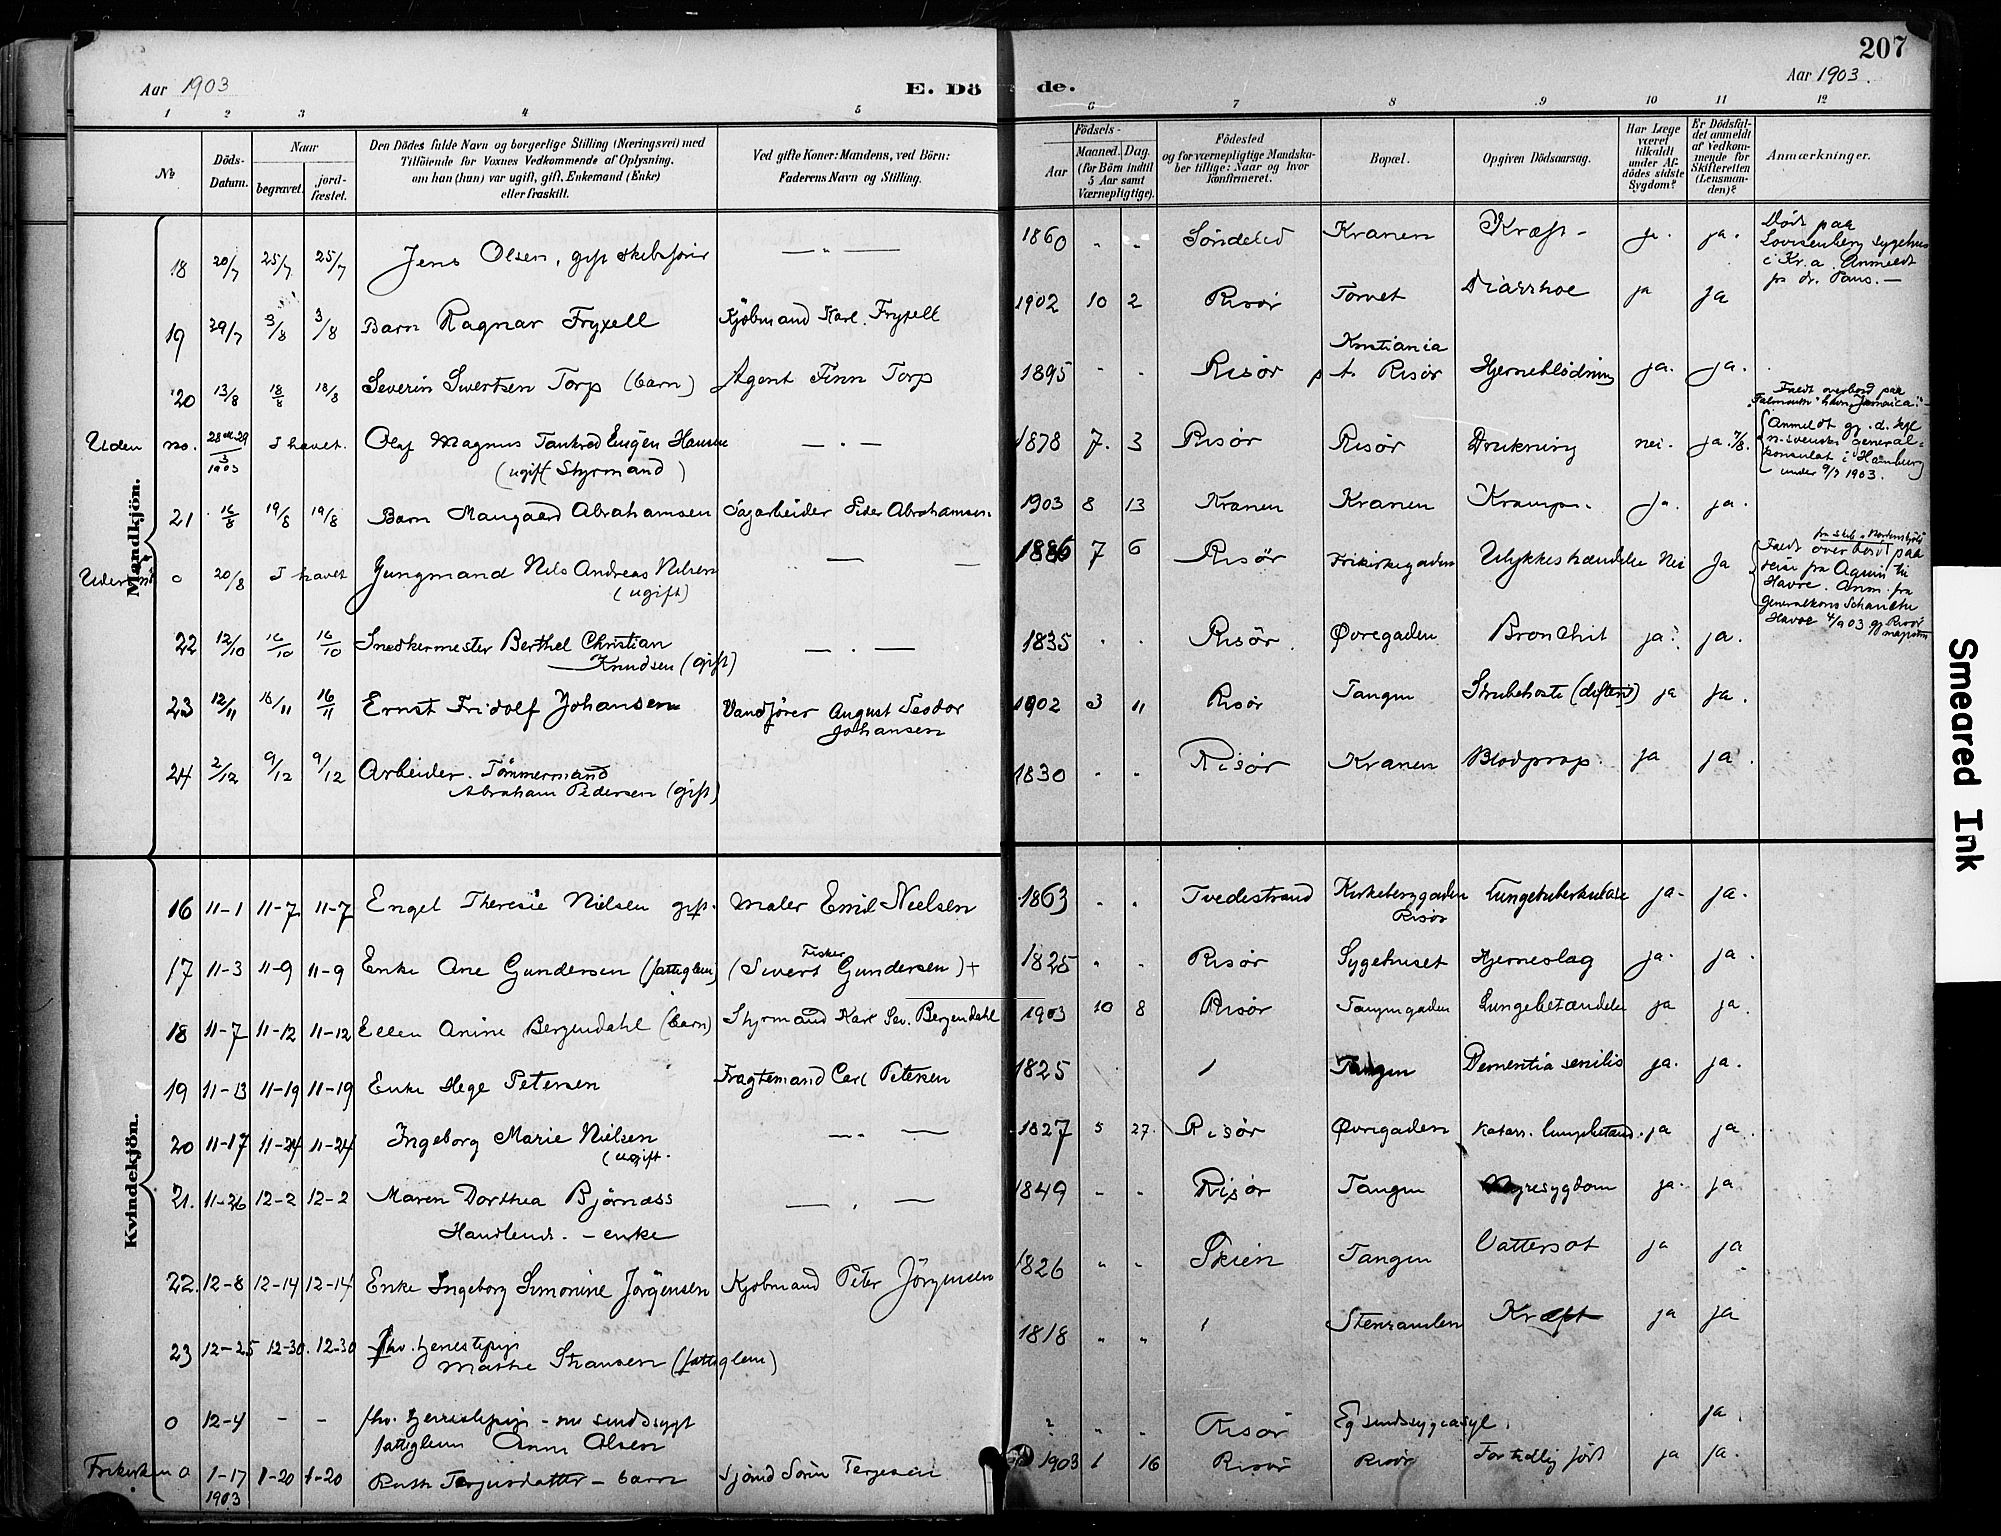 207
Aar 1903
E. Dö
de.
Aar 1903.
1 2 3 4 5 6 7 8 9 10 11 12
No
Döds-Datum.
Naar
begravet.
jord-fæstet.
Den Dödes fulde Navn og borgerlige Stilling (Næringsvei) med
Tilföiende for Voxnes Vedkommende af Oplysning,
om han (hun) var ugift, gift, Enkemand (Enke)
eller fraskilt.
Ved gifte Koner: Mandens, ved Börn:
Faderens Navn og Stilling.
Födsels-
Aar
Maaned. Dag.
(for Börn indtil
5 Aar samt
Værnepligtige).
Födested
og for værnepligtige Mandska-
ber tillige: Naar og hvor
konfirmeret.
Bopæl.
Opgiven Dödsaarsag.
Har Læge
været
tilkaldt
under Af-
dödes sidste
Sygdom?
Er Dödsfal-
det anmeldt
af Vedkom-
mende for
Skifteretten
(Lensman-
den)?
Anmærkninger.
Mandkjön.
18 20/7 25/7 25/7 Jens Olsen, gift skibsfører — " — 1860 " " Söndeled Kranen Kræft - ja. ja. Död paa
Lovisenberg sygehus
i Kr.a. Anmeldt
fr dr. Paus. —
19 29/7 3/8 3/8 Barn Ragnar Fryxell Kjöbmand Karl Fryxell 1902 10 2 Risör Torvet Diarrhoe ja ja
20 13/8 18/8 18/8 Severin Sivertsen Torp (barn) Agent Finn Torp 1895 " " Risör Kristiania
p t. Risör Hjerneblödning ja. ja.
Uden no. 28 29/3 1903 I havet. Olaf Magnus Tankred Eugen Hansen
(ugift Styrmand) — " — 1878 7. 3 Risör Risör Drukning nei. ja. 7/8. Faldt overbord paa
"Falmouth" havn, Jamaica.
Anmeldt gj. d. kgl
n. svenske general-
konsulat i Hamburg
under 9/7 1903.
21 16/8 19/8 19/8 Barn Maugaard Abrahamsen Sagarbeider Peder Abrahamsen. 1903 8 13 Kranen Kranen Krampe. Ja. ja.
Uden no 20/8 I havet Jungmand Nils Andreas Nilsen
(ugift) — 1886 7 6 Risör Frikirkegaden Ulykkeshændelse Nei Ja
Faldt overbord paa
reise fra til
Havre. Anm. fra
Generalkons
Havre 4/9 03 gj Risör
22 12/10 16/10 16/10 Snedkermester Berthel Christian
Knudsen (gift) — " — 1835 " " Risör. Øvregaden Bronchit ja. ja.
23 12/11 16/11 16/11 Ernst Fridolf Johansen Vandförer August Teodor
Johansen 1902 3 11 Risör Tangen Strubehoste (difterit) ja ja.
24 2/12 9/12 9/12 Arbeider. Tömmermand
Abraham Pedersen (gift) 1830 " " Risör Kranen Blodprop. ja ja.
Kvindekjön.
16 11-1 11-7 11-7 Engel Theresie Nielsen gift. Maler Emil Nielsen 1863 " " Tvedestrand Kirkebergaden
Risör Lungetuberkulose ja- ja.
17 11-3 11-9 11-9 Enke Ane Gundersen (fattiglem) (Fisker Sivert Gundersen) + 1825 " " Risör Sygehuset Hjerneslag ja. ja.
18 11-7 11-12 11-12 Ellen Anine Bergendahl (barn) Styrmand Karl Sev. Bergendahl 1903 10 8 Risör Tangengaden Lungebetændelse ja ja.
19 11-13 11-19 11-19 Enke Hege Petersen Fragtemand Carl Petersen 1825 Tangen Dementia senilis ja. ja.
20 11-17 11-24 11-24 Ingeborg Marie Nielsen
(ugift. — " — 1827 5 27. Risör Øvregaden katarr. lungebetænd. ja ja.
21. 11-26 12-2 12-2 Maren Dorthea Björnæss
Handlend. - enke — " — 1849 " " Risör Tangen Nyresygdom ja. ja
22. 12-8 12-14 12-14 Enke Ingeborg Simonine Jörgensen Kjöbmand Peter Jörgensen 1826 " " Skien Tangen Vattersot ja ja
23 12-25 12-30. 12-30 fhv. tjenestepige
Marthe Stiansen (fattiglem) 1818 " " Stenramlen Kræft ja ja
0 12-4 - - fhv. tjenestepige - nu sindssygt
fattiglem Anne Olsen ? " " Risör Eg sindssygeasyl. ja.
Frikirken 0 1-17 1903 1-20 1-20 Ruth Terjesdatter - barn Sjömd Sören Terjesen 1903 1 16 Risör Risör For tidlig födt ja ja.
Smeared Ink